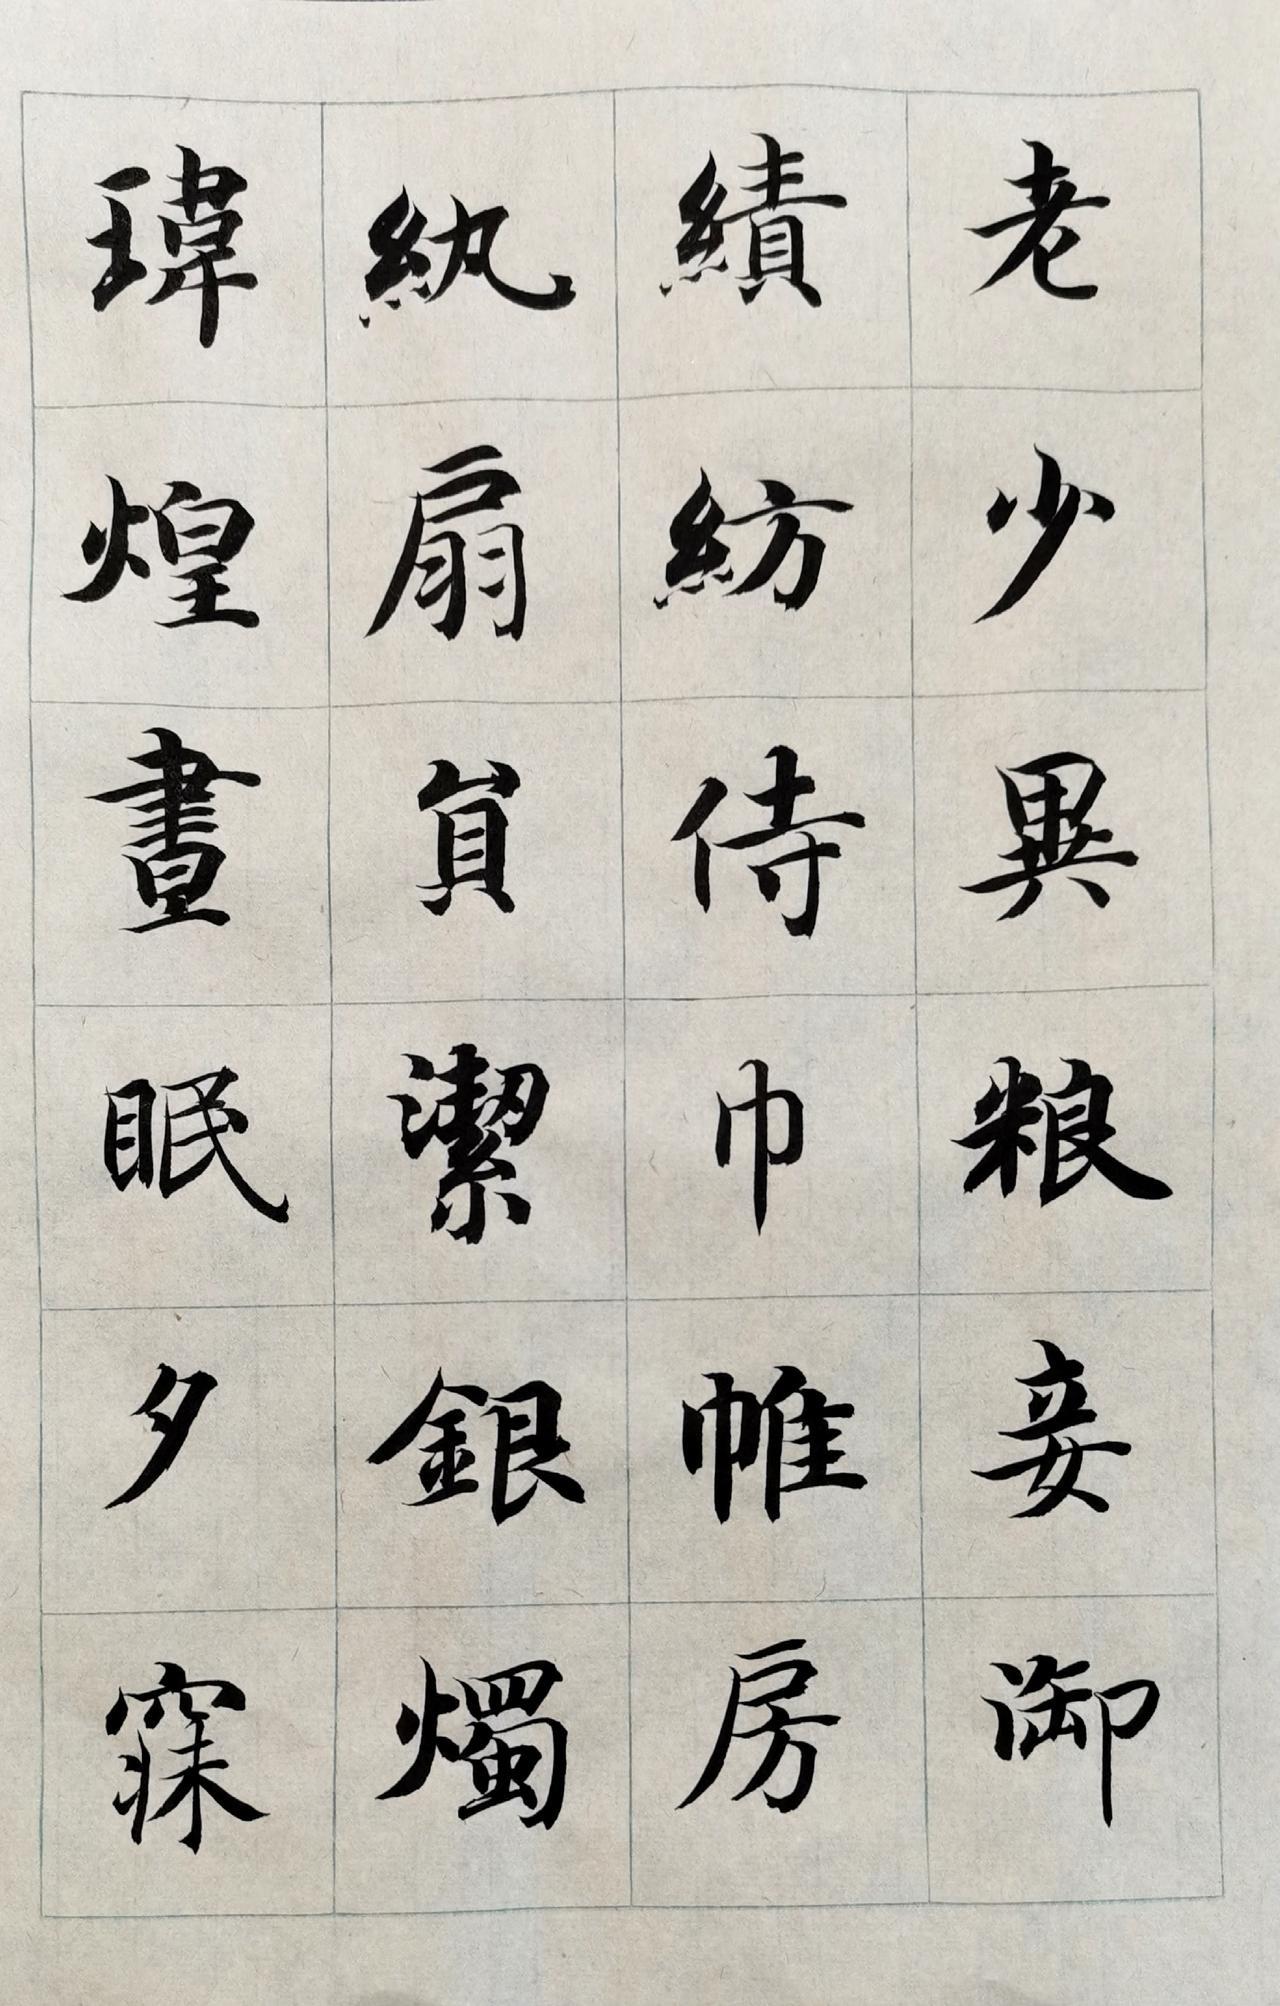 老少異粮妾御
績紡侍巾帷房
紈扇員潔銀燭
瑋煌晝眠夕寐